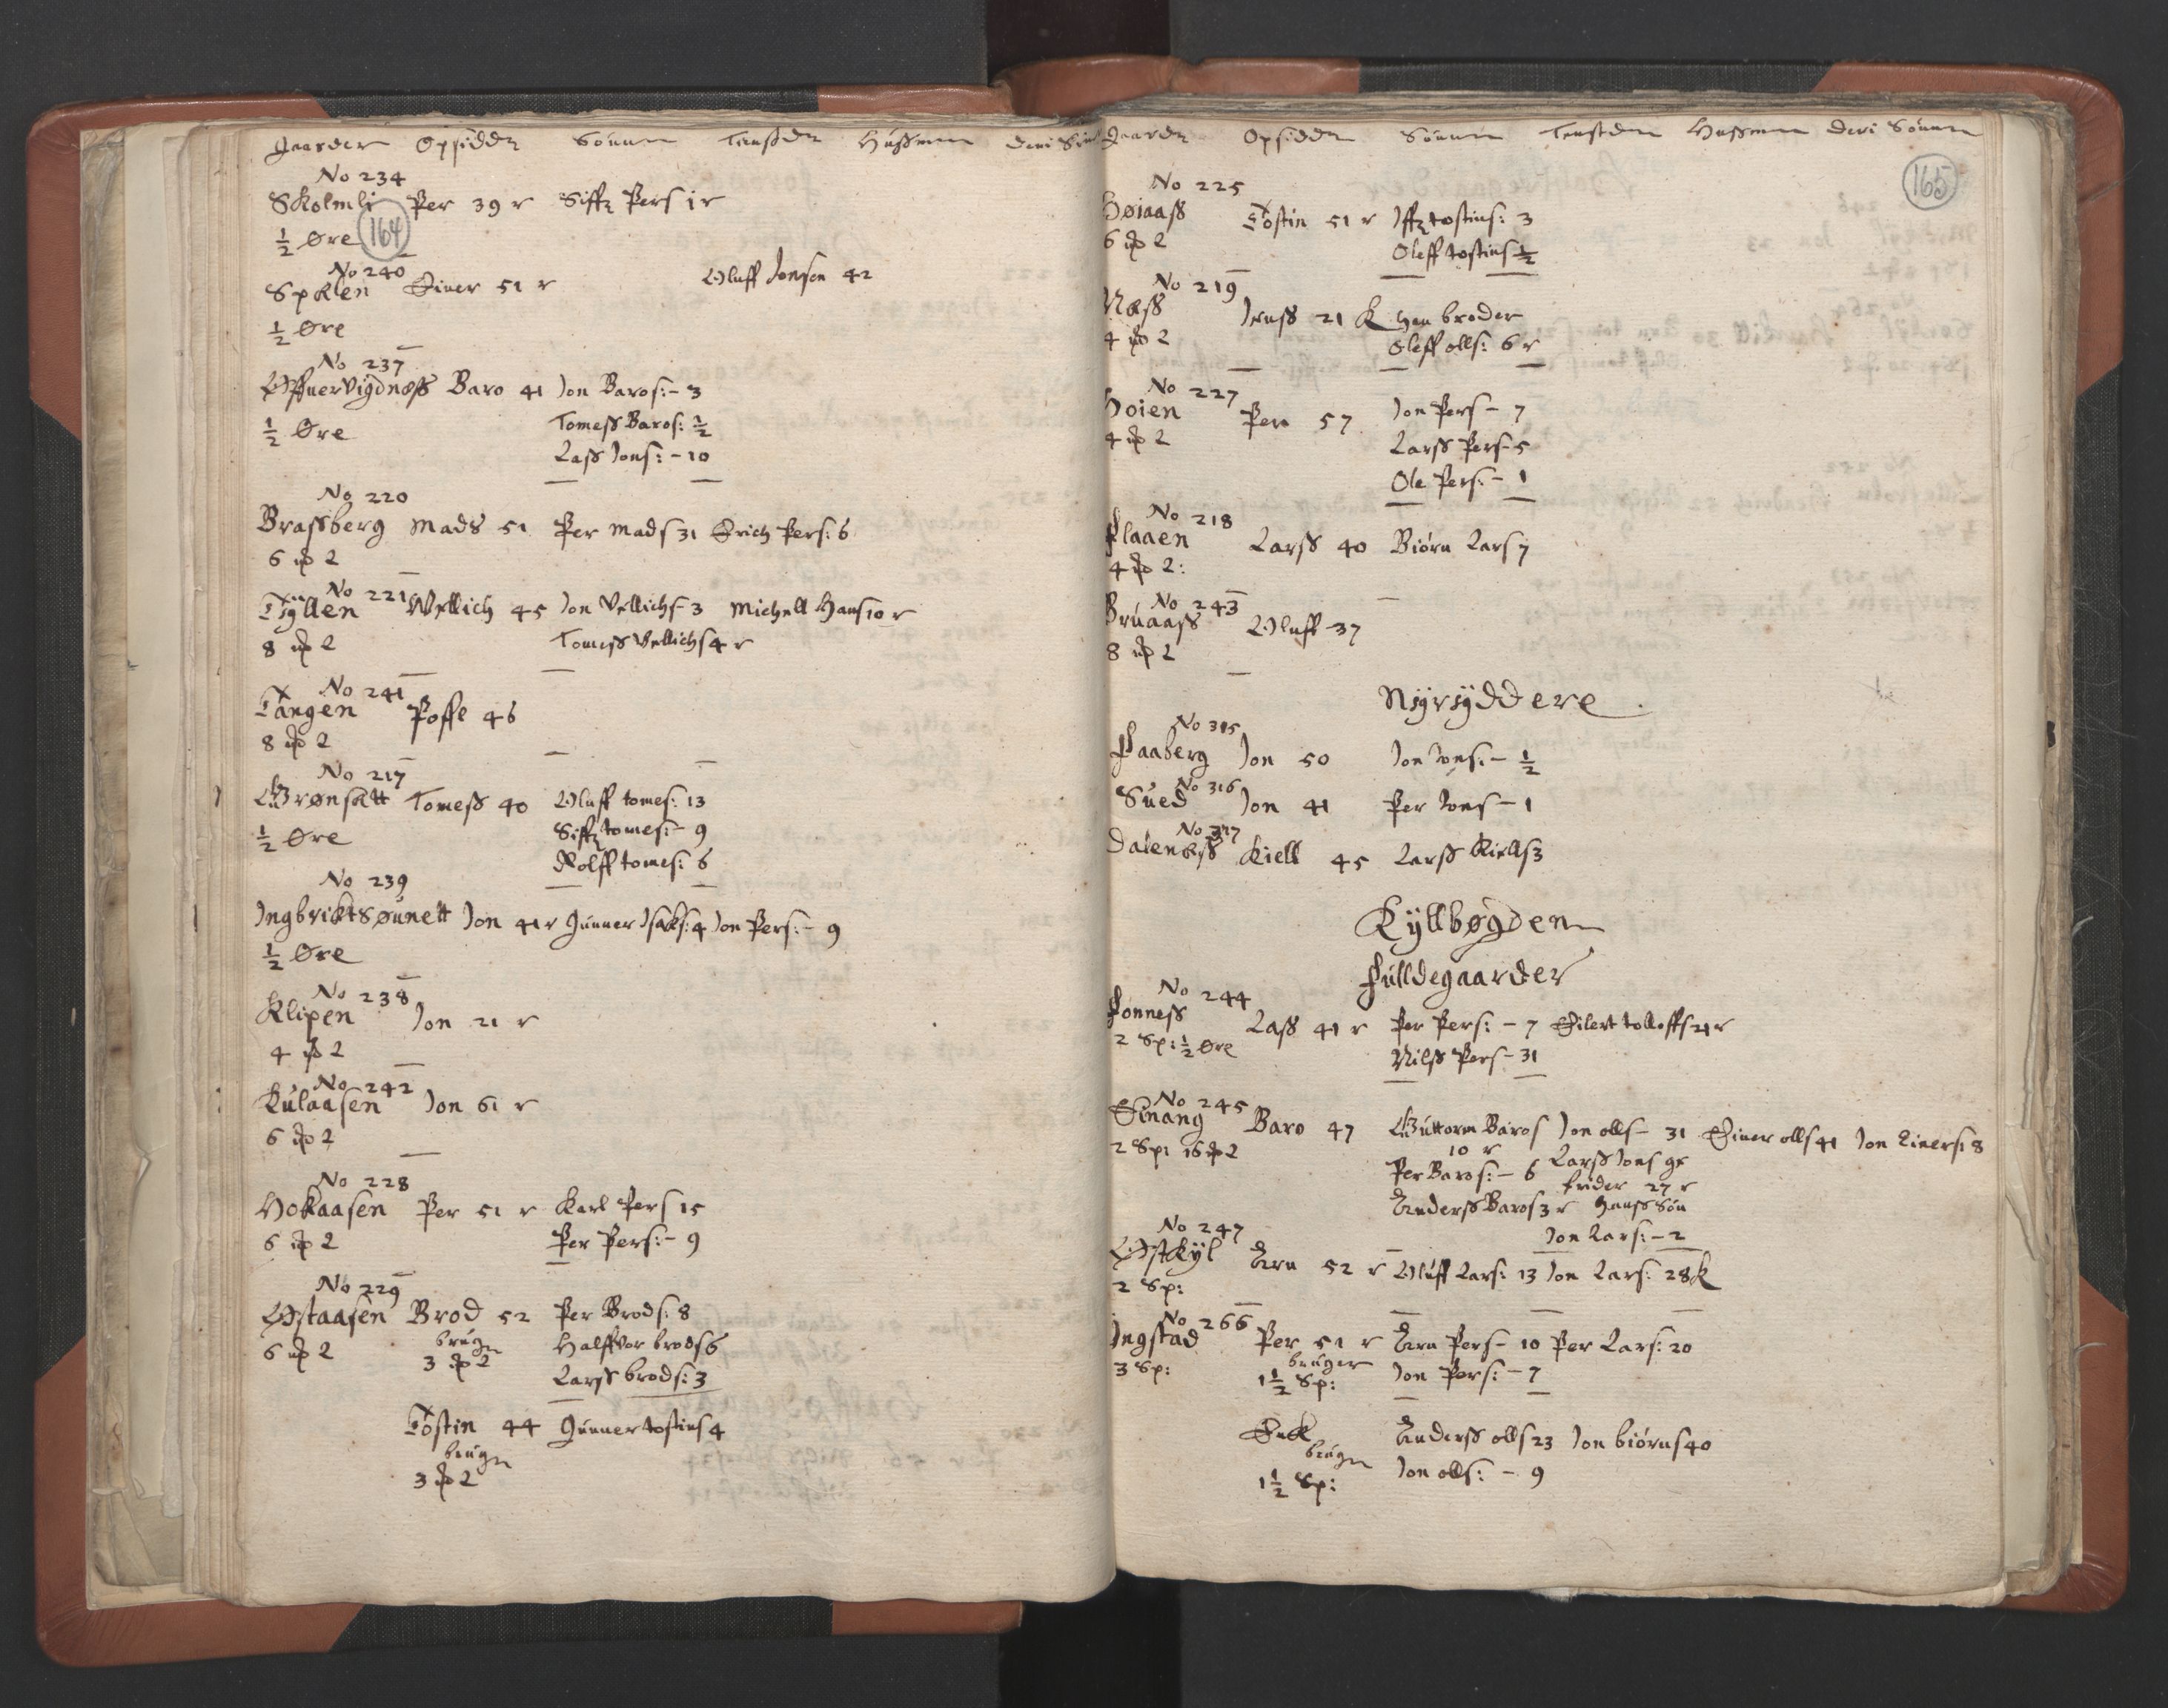 Gaarder Opsidder Sønner Tienstdr Hussmen Deris Søn
No 234
Skolmli Per 39 r Siffr Pers 1 r
½ Øre 164
No 240
Spklen Einer 51 r Oluff Jonsen 42
½ Øre
No 237
Øffuervigdness Baro 41 Jon Baros: - 3
½ Øre Tomess Baros: ½
Lass Jons: - 10
No 220
Brassberg Mads 51 Per Mads 31 Erich Pers: 6
6 ℔ 2
No 221
Tÿllen Wellich 45 Jon Vellichs - 3 Michell Hans 10 r
8 ℔ 2 Tomess Vellichs 4 r
No 241
Tangen Poffl 46
8 ℔ 2
No 217
Grønsett Tomess 40 Oluff tomes: 13
½ Øre Siffr tomes: - 9
Rolff tomes: 6
No 239
Ingbricktsøunett Jon 41 r Gunner Isaks: 4 Jon Pers: - 9
½ Øre
No 238
Klipen Jon 21 r
4 ℔ 2
No 242
Kulaasen Jon 61 r
6 ℔ 2
No 228
Hokaasen Per 51 r Karl Pers 15
6 ℔ 2 Per Pers: - 9
No 229
Østaasen Brod 52 Per Brods: 8
6 ℔ 2 brugr Halffvor brods 6
3 ℔ 2 Larss brods: 3
Tostin 44 Gunner tostins 4
brugr
3 ℔ 2
Gaardr Opsiddr Sønner Tienstdr Hussmen Deris Sønner
165
No 225
Høiaass Tostin 51 r Iffr tostins: 3
6 ℔ 2 Oleff tostins ½
No 219
Næss Jenss 21 K Hans broder
4 ℔ 2 Oleff olls: 6 r
No 227
Hoien Per 57 Jon Pers - 7
4 ℔ 2 Larss Pers - 5
Ole Pers: - 1
No 218
Flaaen Larss 40 Biørn Lars 7
4 ℔ 2:
No 243
Bruaass Oluff 37
8 ℔ 2
Nÿrÿddere
No 315
Faaberg Jon 50 Jon Jons: - ½
No 316
Sued Jon 41 Per Jons - 1
No 317
Daleness Kiell 45 Larss Kiells 3
Kyllbøgden
Fulldegaarder
No 244
Fonness Lass 41 r Per Pers: - 7 Eilert tolloffs 21 r
2 Sp: ½ Øre Nilss Pers - 31
No 245
Einang Baro 47 Guttorm Baros Jon olls - 31 Einer olls 41 Jon Einers: 8
2 Sp: 16 ℔ 2 10 r Larss Jons 95
Per Baros: - 6 frider 27 r
Anderss Baros 3 r Hanss Søn
Jon Lars: - 2
No 247
Østkÿl Arn 52 r Oluff Lars: 13 Jon Lars: 28 K
2 Sp:
No 266
Ingstad Per 51 r Arn Pers - 10 Per Lars: 20
3 Sp: bruger Jon Pers: - 7
1½ Sp:
Enck Anderss olls 23 Jon biørns 40
brugr Jon olls: - 9
1½ Sp: